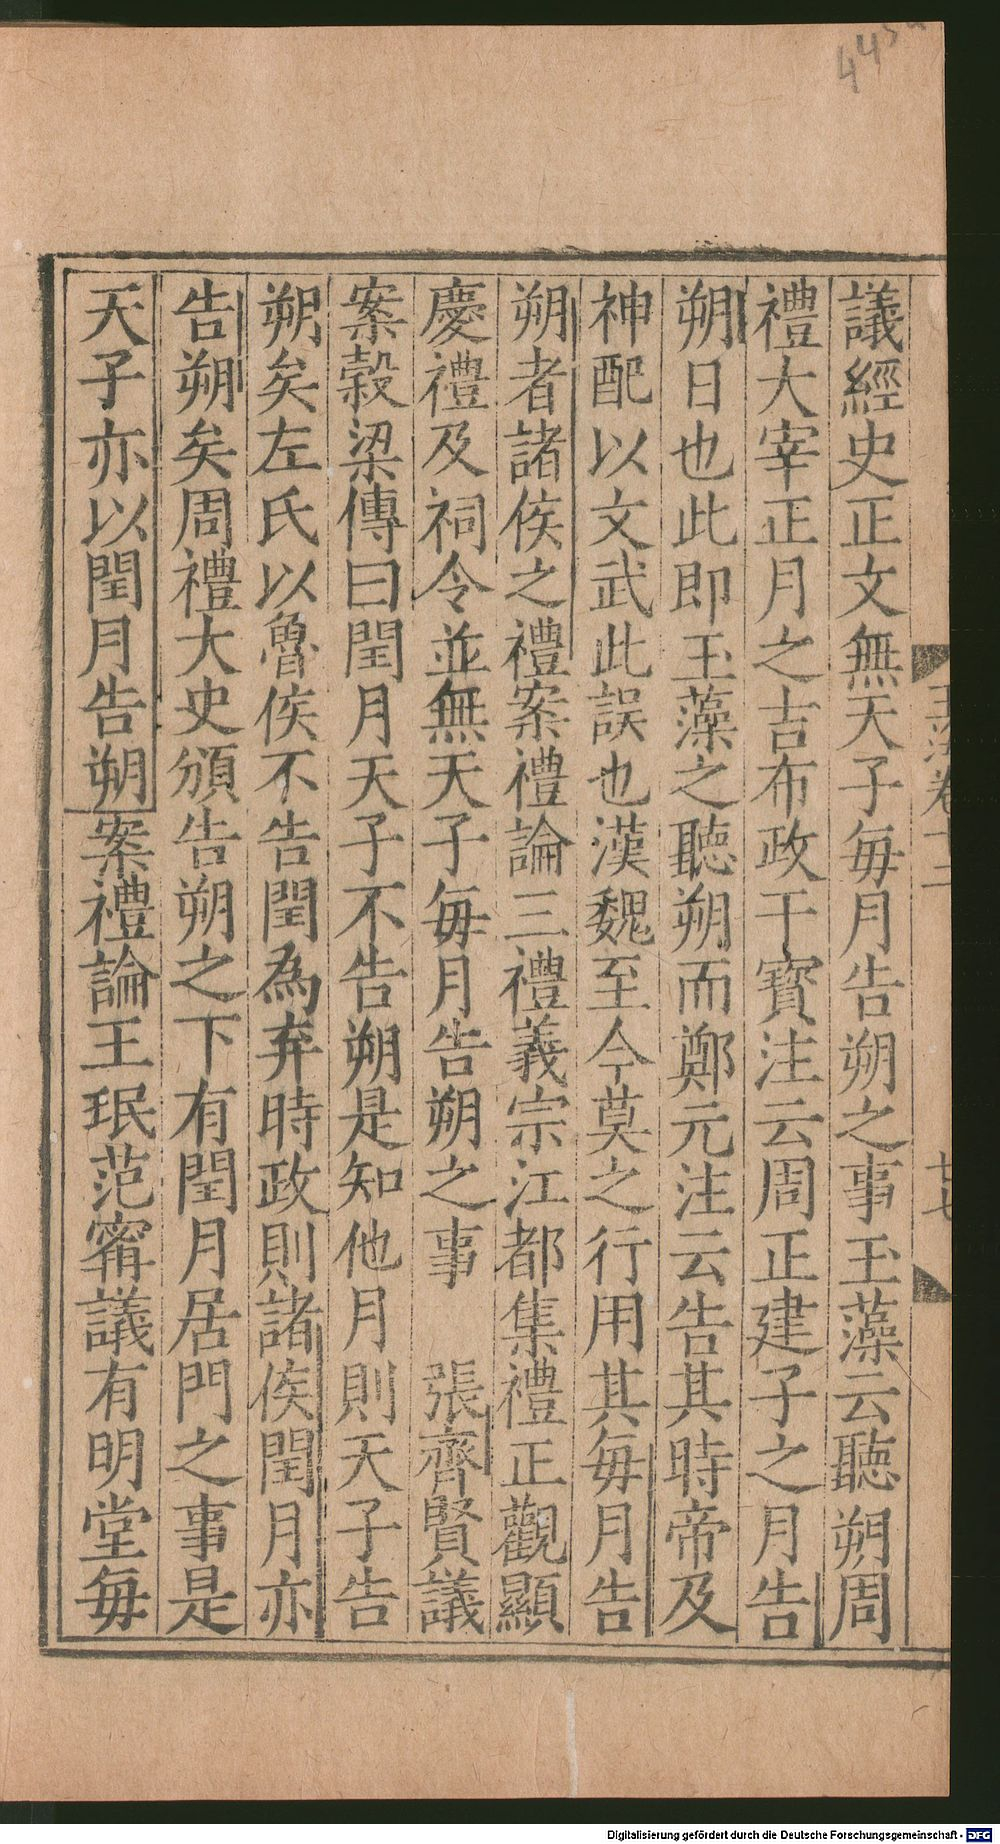 議經史正文無天子每月告朔之事玉藻云聽朔周
禮大宰正月之吉布政干寶注云周正建子之月告
朔日也此即玉藻之聽朔而鄭元注云告其時帝及
神配以文武此誤也漢魏至今莫之行用其每月告
朔者諸侯之禮案禮論三禮義宗江都集禮正觀顯
慶禮及祠令並無天子每月告朔之事　張齊賢議
案穀梁傳曰閏月天子不告朔是知他月則天子告
朔矣左氏以魯侯不告閏為弃時政則諸侯閏月亦
告朔矣周禮大史頒告朔之下有閏月居門之事是
天子亦以閏月告朔案禮論王珉范甯議有明堂每
廿七
445a
Digitalisierung gefördert durch die Deutsche Forschungsgemeinschaft - DFG